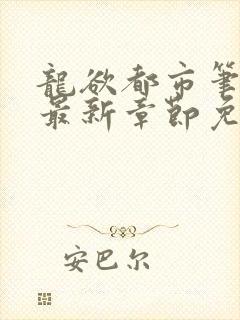 龍欲都市筆
最新章節免
安巴尔